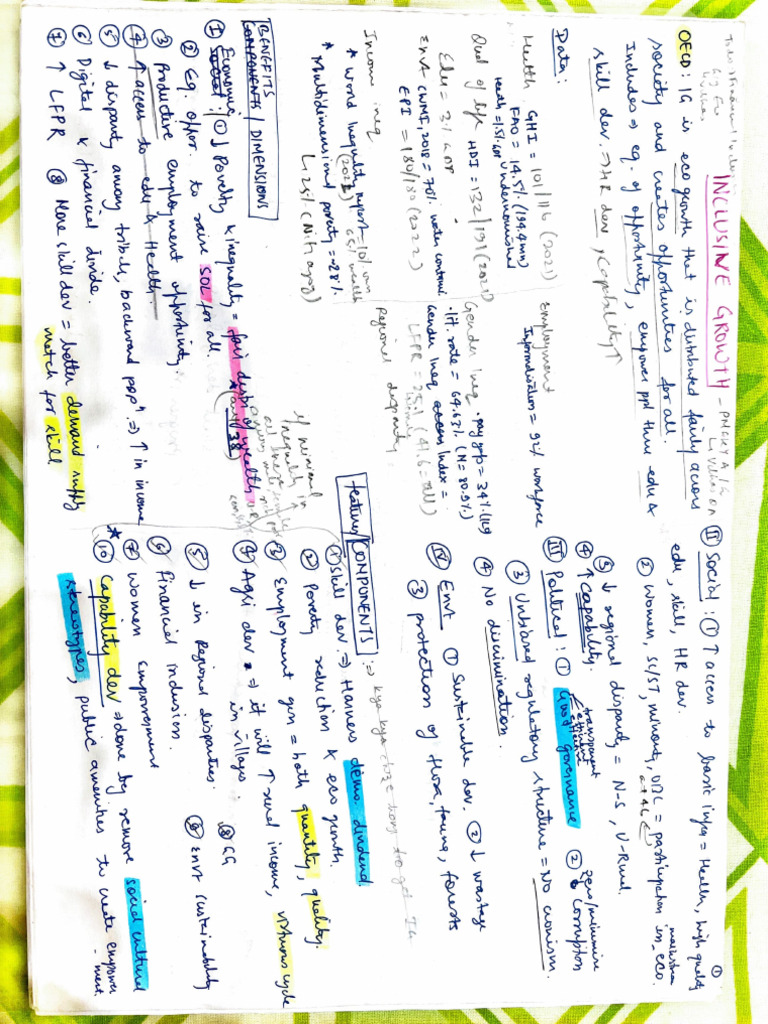 ①
INCLUSIVE GROWTH
OECD: IG is eco growth that is distributed fairly across
society and creates opportunities for all.
Includes ⇒ eq. of opportunity, empower ppl thru edu &
skill dev. ⇒ HR dev, Capability ↑
Data:
Health GHI = 101/116 (2021)
FAO = 14.5% (194.4mn)
undernourished
Qual of life HDI = 132/191 (2021)
Edu = 3% GDP
Envt CWMI, 2018 = 70% water contami
EPI = 180/180 (2022)
Income ineq
* World Inequality report = 10%
(2022) 65% wealth
* Multidimensional poverty = 28%
↳ 25% (Niti Ayog)
Employment
Informalisation = 92% workforce
Gender Ineq • pay gap = 34%
• lit. rate = 64.63% (M = 80.9%)
Gender Ineq Index =
LFPR = 25% (41.6 = all)
Regional disparity
BENEFITS
COMPONENTS / DIMENSIONS
① Economic, ① ↓ Poverty & inequality = fair distri of wealth
(art 38)
② Eq. oppor. to raise SOL for all.
③ Productive employment opportunity
④ ↑ access to edu & Health.
⑤ ↓ disparity among tribals, backward popⁿ. ⇒ ↑ in income
⑥ Digital & financial divide.
⑦ ↑ LFPR ⑧ More skill dev = better demand supply
match for skill
Ⅱ Social: ① ↑ access to basic infra = Health, high quality
edu, skill, HR dev.
② Women, SC/ST, minority, OBC = participation in eco.
mainstream
③ ↓ regional disparity = N-S, U-Rural.
④ ↑ Capability.
transparent
efficient
effective
Ⅲ Political: ① Good governance ② Corruption
③ Unbiased regulatory structure = No cronism.
④ No discrimination.
Ⅳ Envt ① Sustainable dev. ② ↓ wastage
③ protection of flora, fauna, forests
Features/COMPONENTS: ⇒ kya kya chize hongi to get IG
① Skill dev. ⇒ Harness demo. dividend.
② Poverty reduction & eco growth.
③ Employment gen = both quantity, quality.
④ Agri dev ⇒ it will ↑ rural income, virtuous cycle
in villages
⑤ ↓ in Regional disparities. ⑧ GG
⑥ Financial inclusion. ⑨ Envt sustainability
⑦ Women empowerment
* ⑩ Capability dev ⇒ done by remove social cultural
stereotypes, public amenities to create empower
-ment.